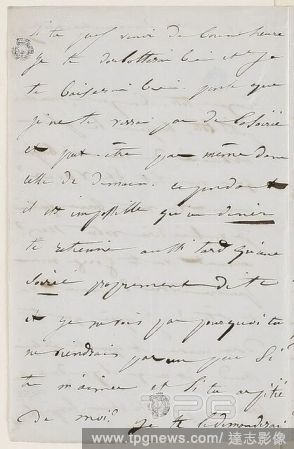 si tu peux venir de bonne heure
je te dorlotterai bien et je
te baiserai bien parce que
je ne te verrai pas de la soirée
et peut-être pas même dans
celle de demain. cependant
il est impossible qu'un dîner
te retienne aussi tard qu'une
soirée proprement dite
et je ne vois pas pourquoi tu
ne viendrais pas un peu si
tu m'aimes et si tu as pitié
de moi.
je te le demanderai
PG
www.tpgnews.com / 達志影像